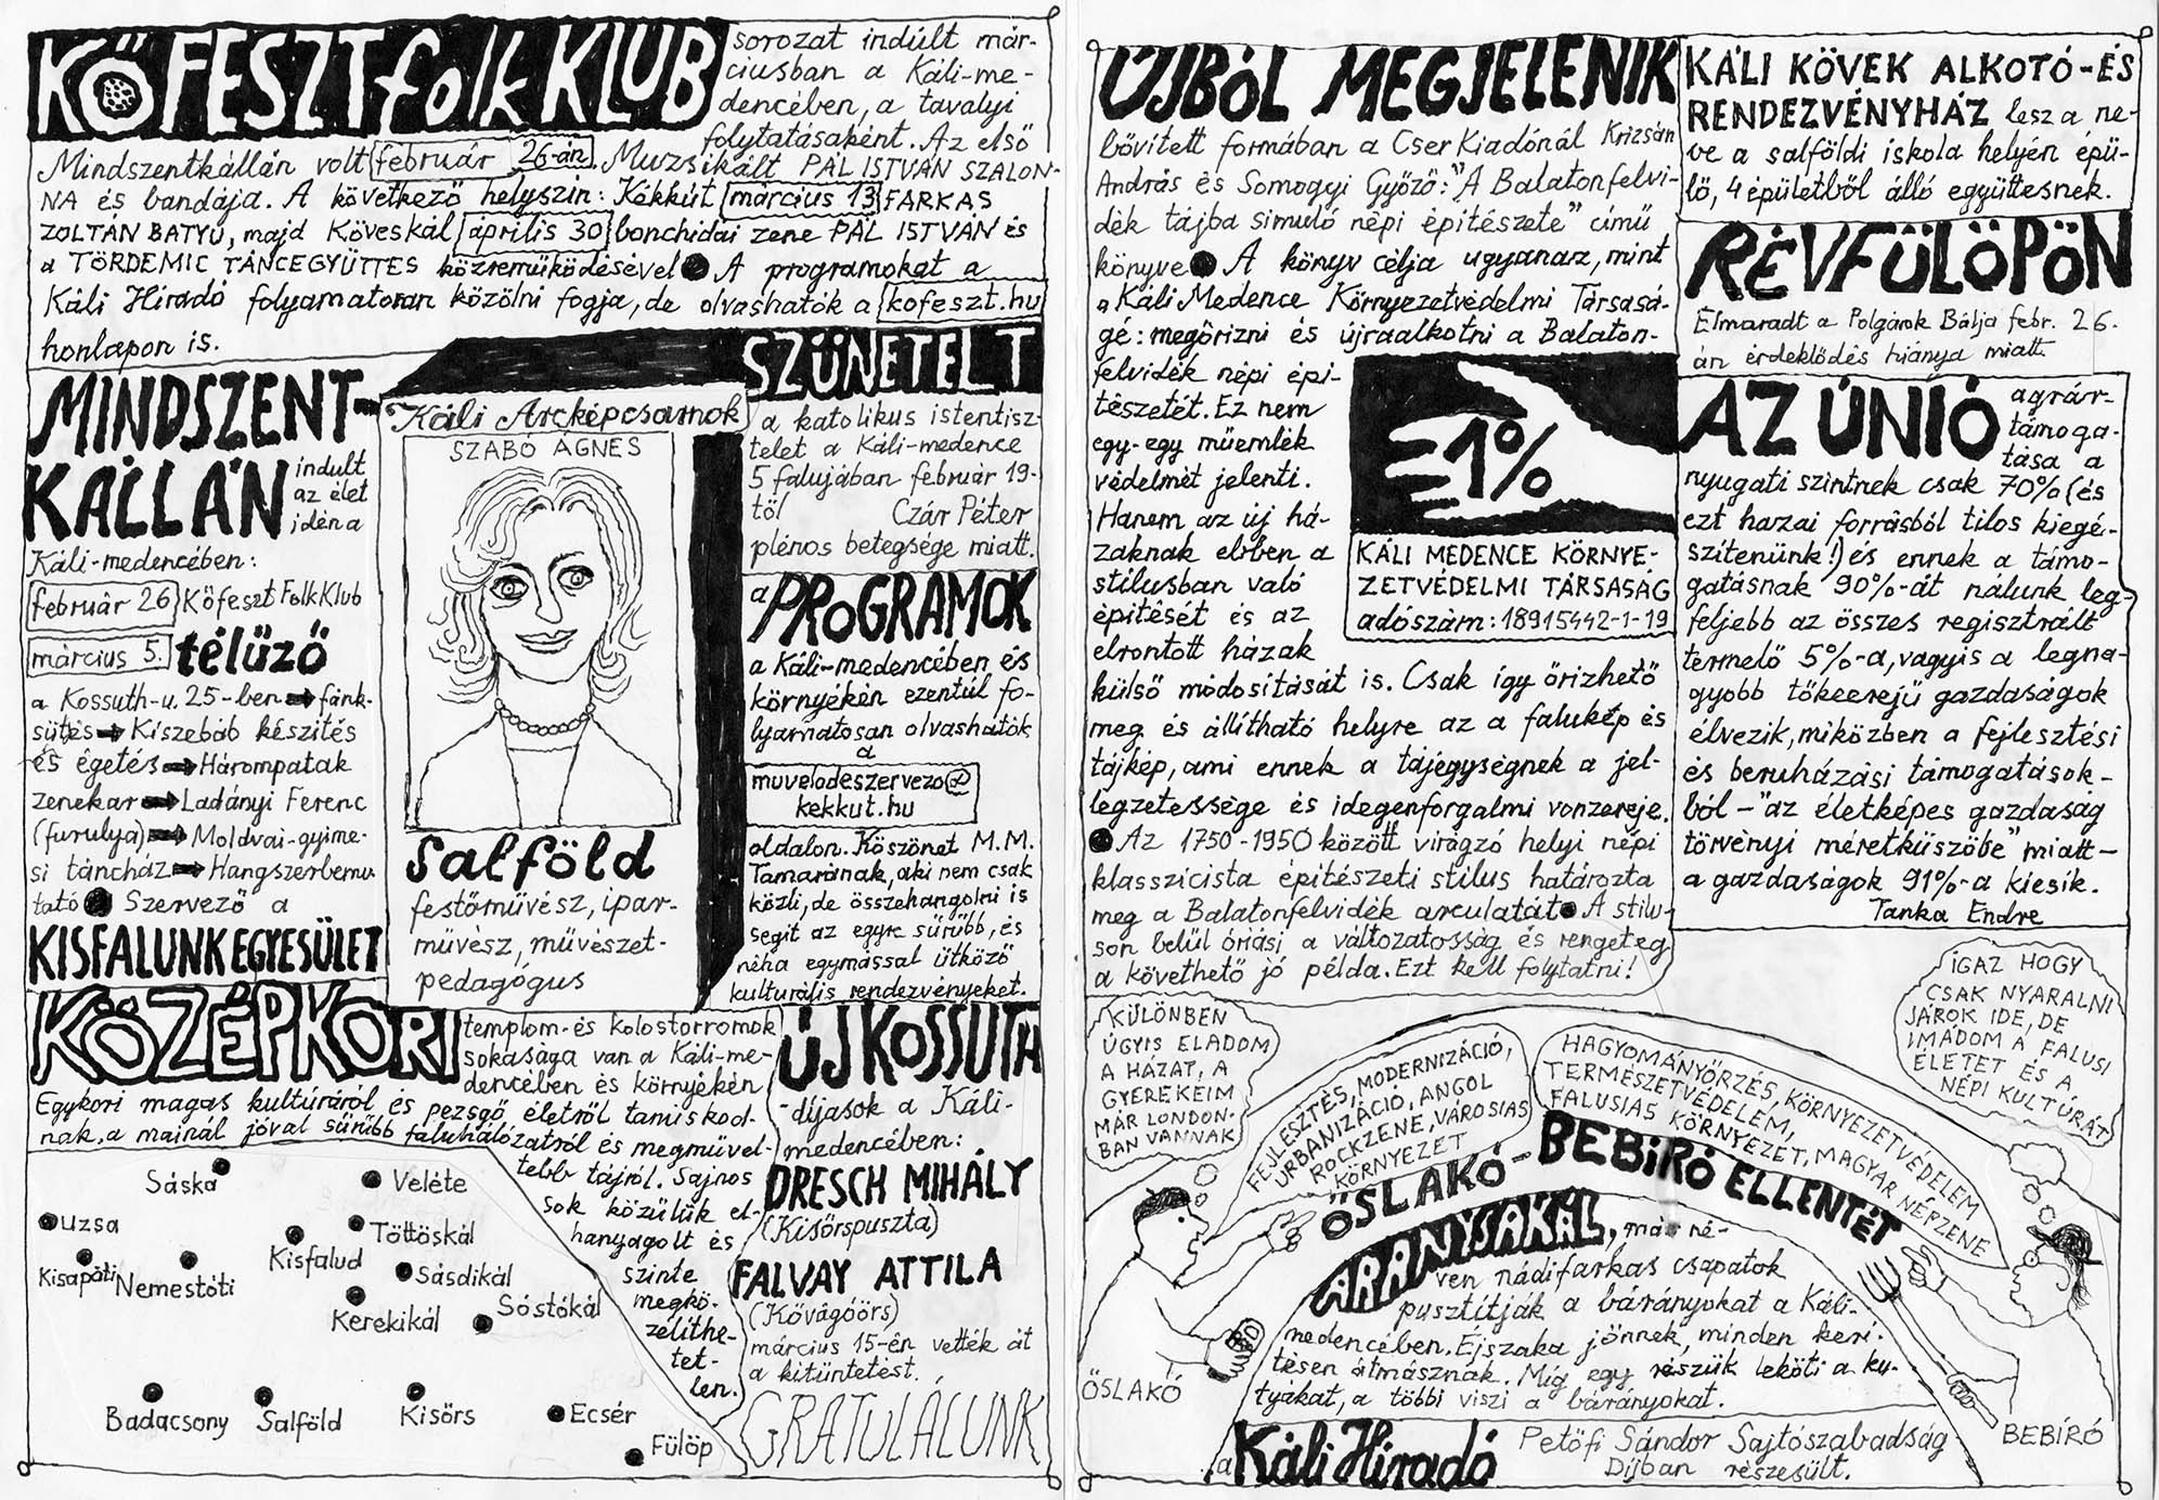 KŐFESZT folk KLUB
sorozat indúlt már-
ciusban a Káli-me-
dencében, a tavalyi
folytatásaként. Az első
Mindszentkállán volt február 26-án. Muzsikált PÁL ISTVÁN SZALON-
NA és bandája. A következő helyszín: Kékkút március 13 FARKAS
ZOLTÁN BATYU, majd Köveskál április 30 bonchidai zene PÁL ISTVÁN és
a TÖRDEMIC TÁNCEGYÜTTES közreműködésével ● A programokat a
Káli Híradó folyamatosan közölni fogja, de olvashatók a kofeszt.hu
honlapon is.
MINDSZENT-
KÁLLÁN
indult
az élet
idén a
Káli-medencében:
február 26 Kőfeszt Folk Klub
március 5. télűző
a Kossuth-u. 25-ben ➡ fánk-
sütés ➡ Kiszebáb készítés
és égetés ➡ Hárompatak
zenekar ➡ Ladányi Ferenc
(furulya) ➡ Moldvai-gyime-
si táncház ➡ Hangszerbemu
tató ● Szervező a
KISFALUNK EGYESÜLET
Káli Arcképcsarnok
SZABÓ ÁGNES
Salföld
festőművész, ipar-
művész, művészet-
pedagógus
SZÜNETELT
a katolikus istentisz-
telet a Káli-medence
5 falujában február 19-
től Czár Péter
plénos betegsége miatt.
a PROGRAMOK
a Káli-medencében és
környékén ezentúl fo-
lyamatosan olvashatók
a
muvelodeszervezo@
kekkut.hu
oldalon. Köszönet M.M.
Tamarának, aki nem csak
közli, de összehangolni is
segít az egyre sűrűbb, és
néha egymással ütköző
kulturális rendezvényeket.
KÖZÉPKORI
templom-és kolostorromok
sokasága van a Káli-me-
dencében és környékén
Egykori magas kultúráról és pezsgő életről tanúskod-
nak, a mainál jóval sűrűbb faluhálózatról és megművel-
tebb tájról. Sajnos
sok közülük el-
hanyagolt és
szinte
megkö-
zelíthe-
tet-
len.
Sáska
Veléte
Uzsa
Töttöskál
Kisfalud
Kisapáti
Nemestóti
Sásdikál
Kerekikál
Sóstókál
Badacsony
Salföld
Kisőrs
Ecsér
Fülöp
ÚJ KOSSUTH
-díjasok a Káli-
medencében:
DRESCH MIHÁLY
(Kisőrspuszta)
FALVAY ATTILA
(Kővágóörs)
március 15-én vették át
a kitüntetést.
GRATULÁLUNK
ÚJBÓL MEGJELENIK
bővített formában a Cser Kiadónál Krizsán
András és Somogyi Győző: "A Balatonfelvi-
dék tájba simuló népi építészete" című
könyve ● A könyv célja ugyanaz, mint
a Káli Medence Környezetvédelmi Társasá-
gé: megőrizni és újraalkotni a Balaton-
felvidék népi épí-
tészetét. Ez nem
egy-egy műemlék
védelmét jelenti.
Hanem az új há-
zaknak ebben a
stílusban való
építését és az
elrontott házak
külső módosítását is. Csak így őrizhető
meg és állítható helyre az a falukép és
tájkép, ami ennek a tájegységnek a jel-
legzetessége és idegenforgalmi vonzereje.
● Az 1750-1950 között virágzó helyi népi
klasszicista építészeti stílus határozta
meg a Balatonfelvidék arculatát ● A stílu-
son belül óriási a változatosság és rengeteg
a követhető jó példa. Ezt kell folytatni!
1%
KÁLI MEDENCE KÖRNYE-
ZETVÉDELMI TÁRSASÁG
adószám: 18915442-1-19
KÁLI KÖVEK ALKOTÓ-ÉS
RENDEZVÉNYHÁZ lesz a ne-
ve a salföldi iskola helyén épü-
lő, 4 épületből álló együttesnek.
RÉVFÜLÖPÖN
Elmaradt a Polgárok Bálja febr. 26.
án érdeklődés hiánya miatt.
AZ ÚNIÓ
agrár-
támoga-
tása a
nyugati szintnek csak 70% (és
ezt hazai forrásból tilos kiegé-
szítenünk!) és ennek a támo-
gatásnak 90%-át nálunk leg-
feljebb az összes regisztrált
termelő 5%-a, vagyis a legna-
gyobb tőkeerejű gazdaságok
élvezik, miközben a fejlesztési
és beruházási támogatások-
ból - "az életképes gazdaság
törvényi méretküszöbe" miatt -
a gazdaságok 91%-a kiesik.
Tanka Endre
KÜLÖNBEN
ÚGYIS ELADOM
A HÁZAT, A
GYEREKEIM
MÁR LONDON-
BAN VANNAK
FEJLESZTÉS, MODERNIZÁCIÓ,
URBANIZÁCIÓ, ANGOL
ROCKZENE, VÁROSIAS
KÖRNYEZET
HAGYOMÁNYŐRZÉS, KÖRNYEZETVÉDELEM
TERMÉSZETVÉDELEM,
FALUSIAS KÖRNYEZET, MAGYAR NÉPZENE
IGAZ HOGY
CSAK NYARALNI
JÁROK IDE, DE
IMÁDOM A FALUSI
ÉLETET ÉS A
NÉPI KULTÚRÁT
ŐSLAKÓ-BEBÍRÓ ELLENTÉT
ŐSLAKÓ
BEBÍRÓ
ARANYSAKÁL, más né-
ven nádifarkas csapatok
pusztítják a bárányokat a Káli-
medencében. Éjszaka jönnek, minden kerí-
tésen átmásznak. Míg egy részük leköti a ku-
tyákat, a többi viszi a bárányokat.
a Káli Híradó
Petőfi Sándor Sajtószabadság
Díjban részesült.